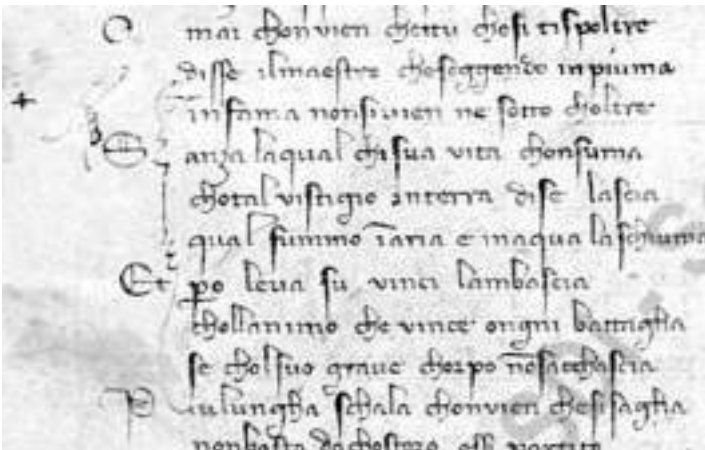 O mai chonvien cheitu chosi tispoltre
disse ilmaestro cheseggendo inpiuma
infama nonsivien ne sotto choltre
S anza laqual chi sua vita chonsuma
chotal vistigio interra dise lascia
qual fummo ĩaria e inaqua laschiuma
Et po leva su vinci lambascia
chollanimo che vince ongni battaglia
se cholsuo grave chorpo nõsacchascia
P iulungha schala chonvien chesisaglia
nonbasta dachostoro essi partito